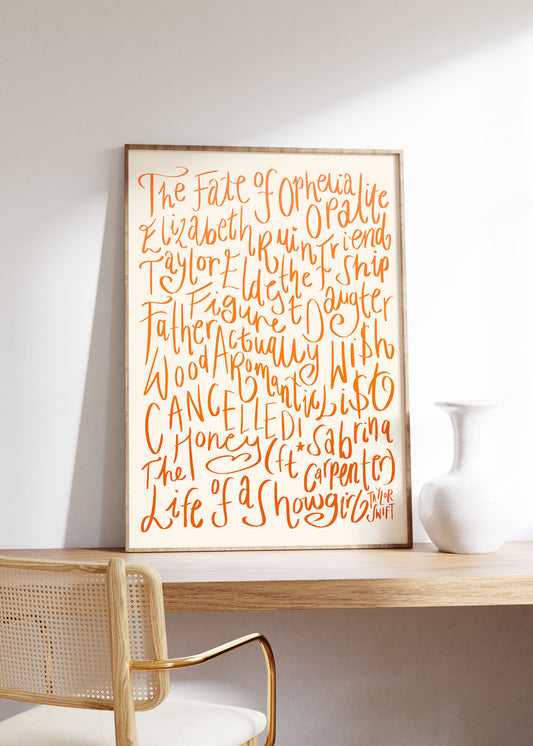 The Fate of Ophelia
Opalite
Elizabeth
Taylor
Ruin the Friend
ship
Eldest Daugter
Father Figure
Actually
Romantic
Wi$h
Li$
Wood
CANCELLED!
Honey
(ft * Sabrina
Carpenter)
The
Life of a Showgirl
TAYLOR
SWIFT